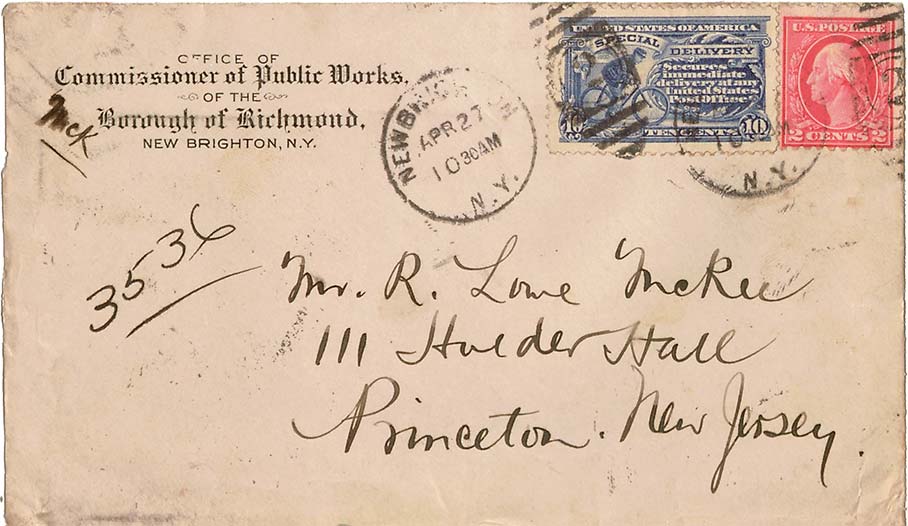 OFFICE OF
Commissioner of Public Works,
OF THE
Borough of Richmond,
NEW BRIGHTON, N.Y.
McK
NEW BRIGHTON
APR 27
10 30 AM
N.Y.
UNITED STATES OF AMERICA
SPECIAL DELIVERY
Secures
immediate
delivery at any
United States
Post Office
10 TEN CENTS 10
U.S. POSTAGE
2 CENTS 2
N.Y.
3536
Mr. R. Lowe McKee
111 Holder Hall
Princeton. New Jersey.